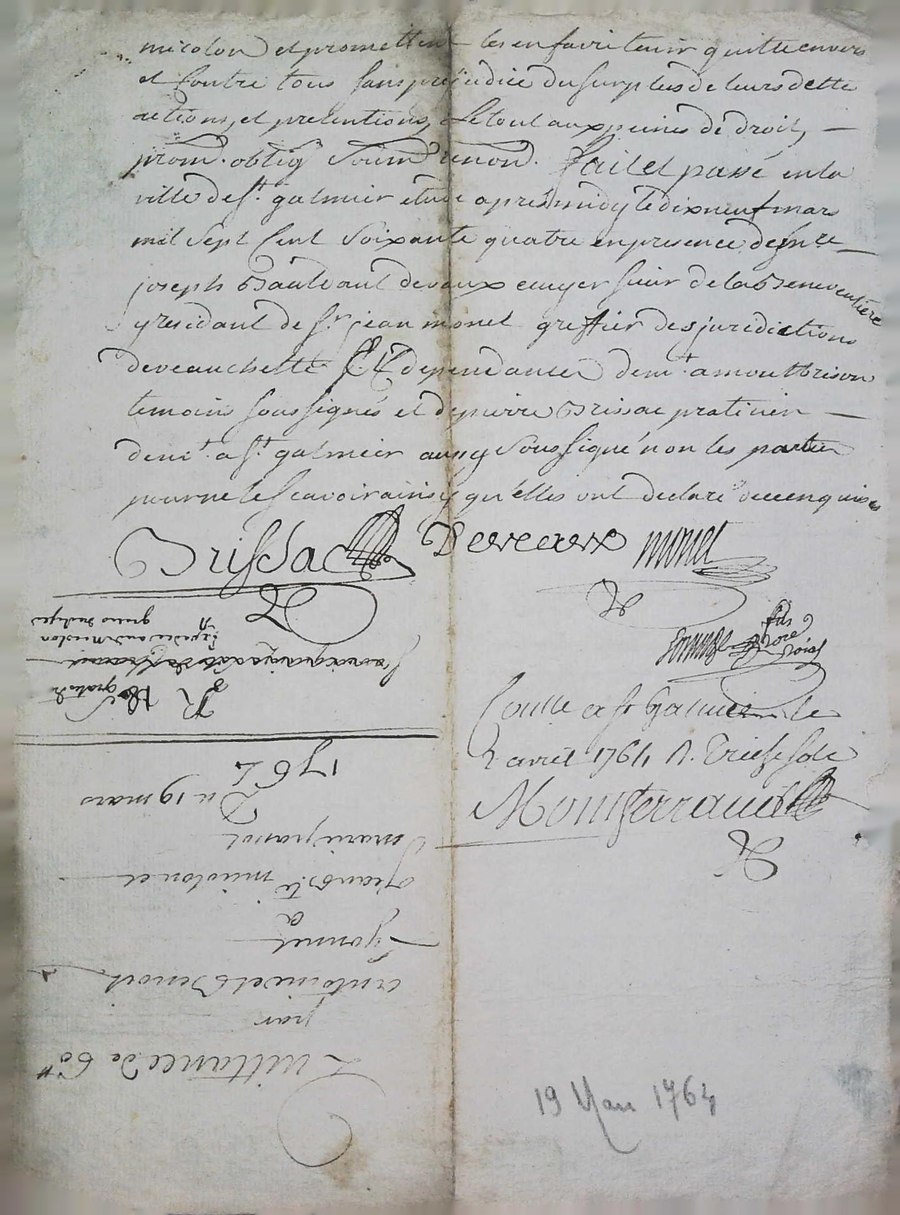 micolon et promettent les en faire tenir quitte envers
et contre tous sans prejudice du surplus de leurs dette
actions, et pretentions, le tout aux peines de droit, —
prom. oblig soum renon. fait et passé en la
ville de st. galmier etude après midy le dix neuf mars
mil sept cent soixante quatre en presence de
joseph devaux ecuyer sieur de la Beneventière
y residant de sr. jean monet greffier des juridictions
de veauchette & dependances demt. a montbrison
temoins soussignés et de pierre Brissac praticien —
demt. a st. galmier aussy soussigné non les parties
pour ne le scavoir ainsy qu'elles ont declaré de ce enquises
Brissac Deveaux monet
fils
notre
roial
Conllé a st Galmier le
2 avril 1764 R. Treize sols
Monferrand
19 Mars 1764
Quittance de 60 ll
par
antoine et Benoit
Lyonnet
a
jean Bte micolon et
marie
Du 19 mars
1764